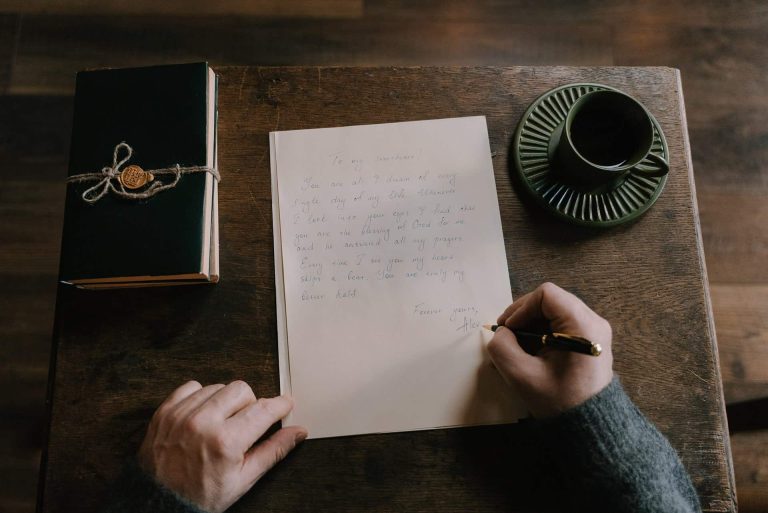 To my sweetheart!
You are all I dream of every
single day of my life. Whenever
I look into your eyes I feel that
you are the blessing of God for me
and he answered all my prayers.
Every time I see you my heart
skips a beat. You are truly my
better half.
Forever yours,
Alex